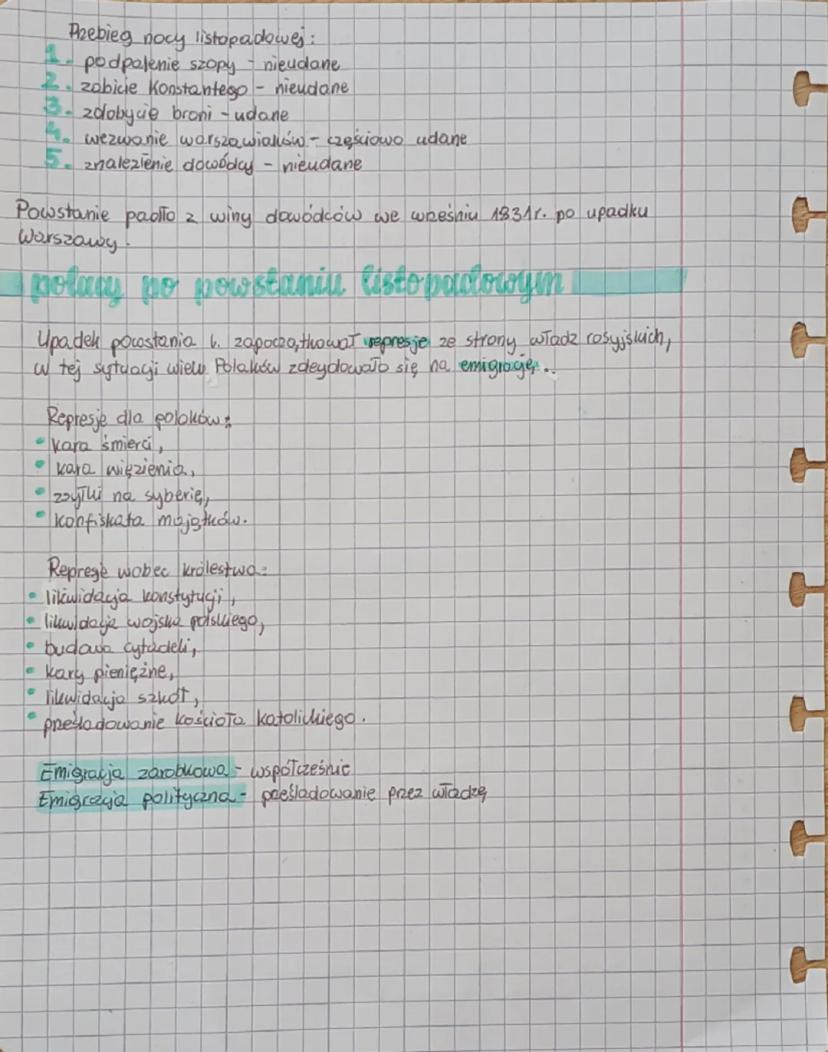 Przebieg nocy listopadowej:
1. podpalenie szopy - nieudane
2. zabicie Konstantego - nieudane
3. zdobycie broni - udane
4. wezwanie warszawiaków - częściowo udane
5. znalezienie dowódcy - nieudane
Powstanie padło z winy dowódców we wrześniu 1831r. po upadku
Warszawy.
polacy po powstaniu listopadowym
Upadek powstania l. zapoczątkował represje ze strony władz rosyjskich,
w tej sytuacji wielu Polaków zdeydowało się na emigrację..
Represje dla polaków:
• kara śmierci,
• kara więzienia,
• zsyłki na syberię,
• konfiskata majątków.
Represje wobec królestwa:
• likwidacja konstytucji,
• likwidacja wojska polskiego,
• budowa cytadeli,
• kary pieniężne,
• likwidacja szkół,
• prześladowanie kościoła katolickiego.
Emigracja zarobkowa - współcześnie
Emigracja polityczna - prześladowanie przez władzę